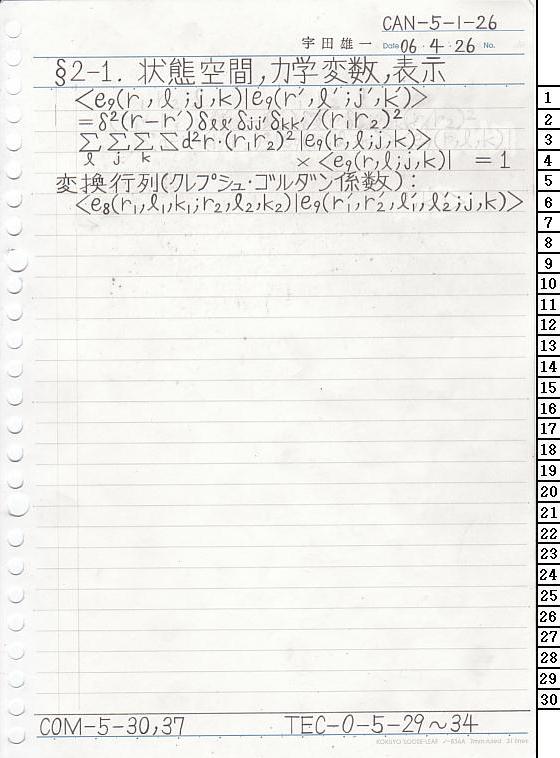 CAN-5-1-26
宇田雄一 Date 06・4・26 No.
§2-1. 状態空間,力学変数,表示
<e₉(r,ℓ;j,k)|e₉(r′,ℓ′;j′,k′)>
=δ²(r-r′)δℓℓ′δjj′δkk′/(r₁r₂)²
Σℓ Σj Σk ∫d²r・(r₁r₂)²|e₉(r,ℓ;j,k)>
×<e₉(r,ℓ;j,k)| =1
変換行列(クレプシュ・ゴルダン係数):
<e₈(r₁,ℓ₁,k₁;r₂,ℓ₂,k₂)|e₉(r₁′,r₂′,ℓ₁′,ℓ₂′;j,k)>
1
2
3
4
5
6
7
8
9
10
11
12
13
14
15
16
17
18
19
20
21
22
23
24
25
26
27
28
29
30
COM-5-30,37 TEC-0-5-29~34
KOKUYO LOOSE-LEAF ノ-836A 7mm ruled 31 lines